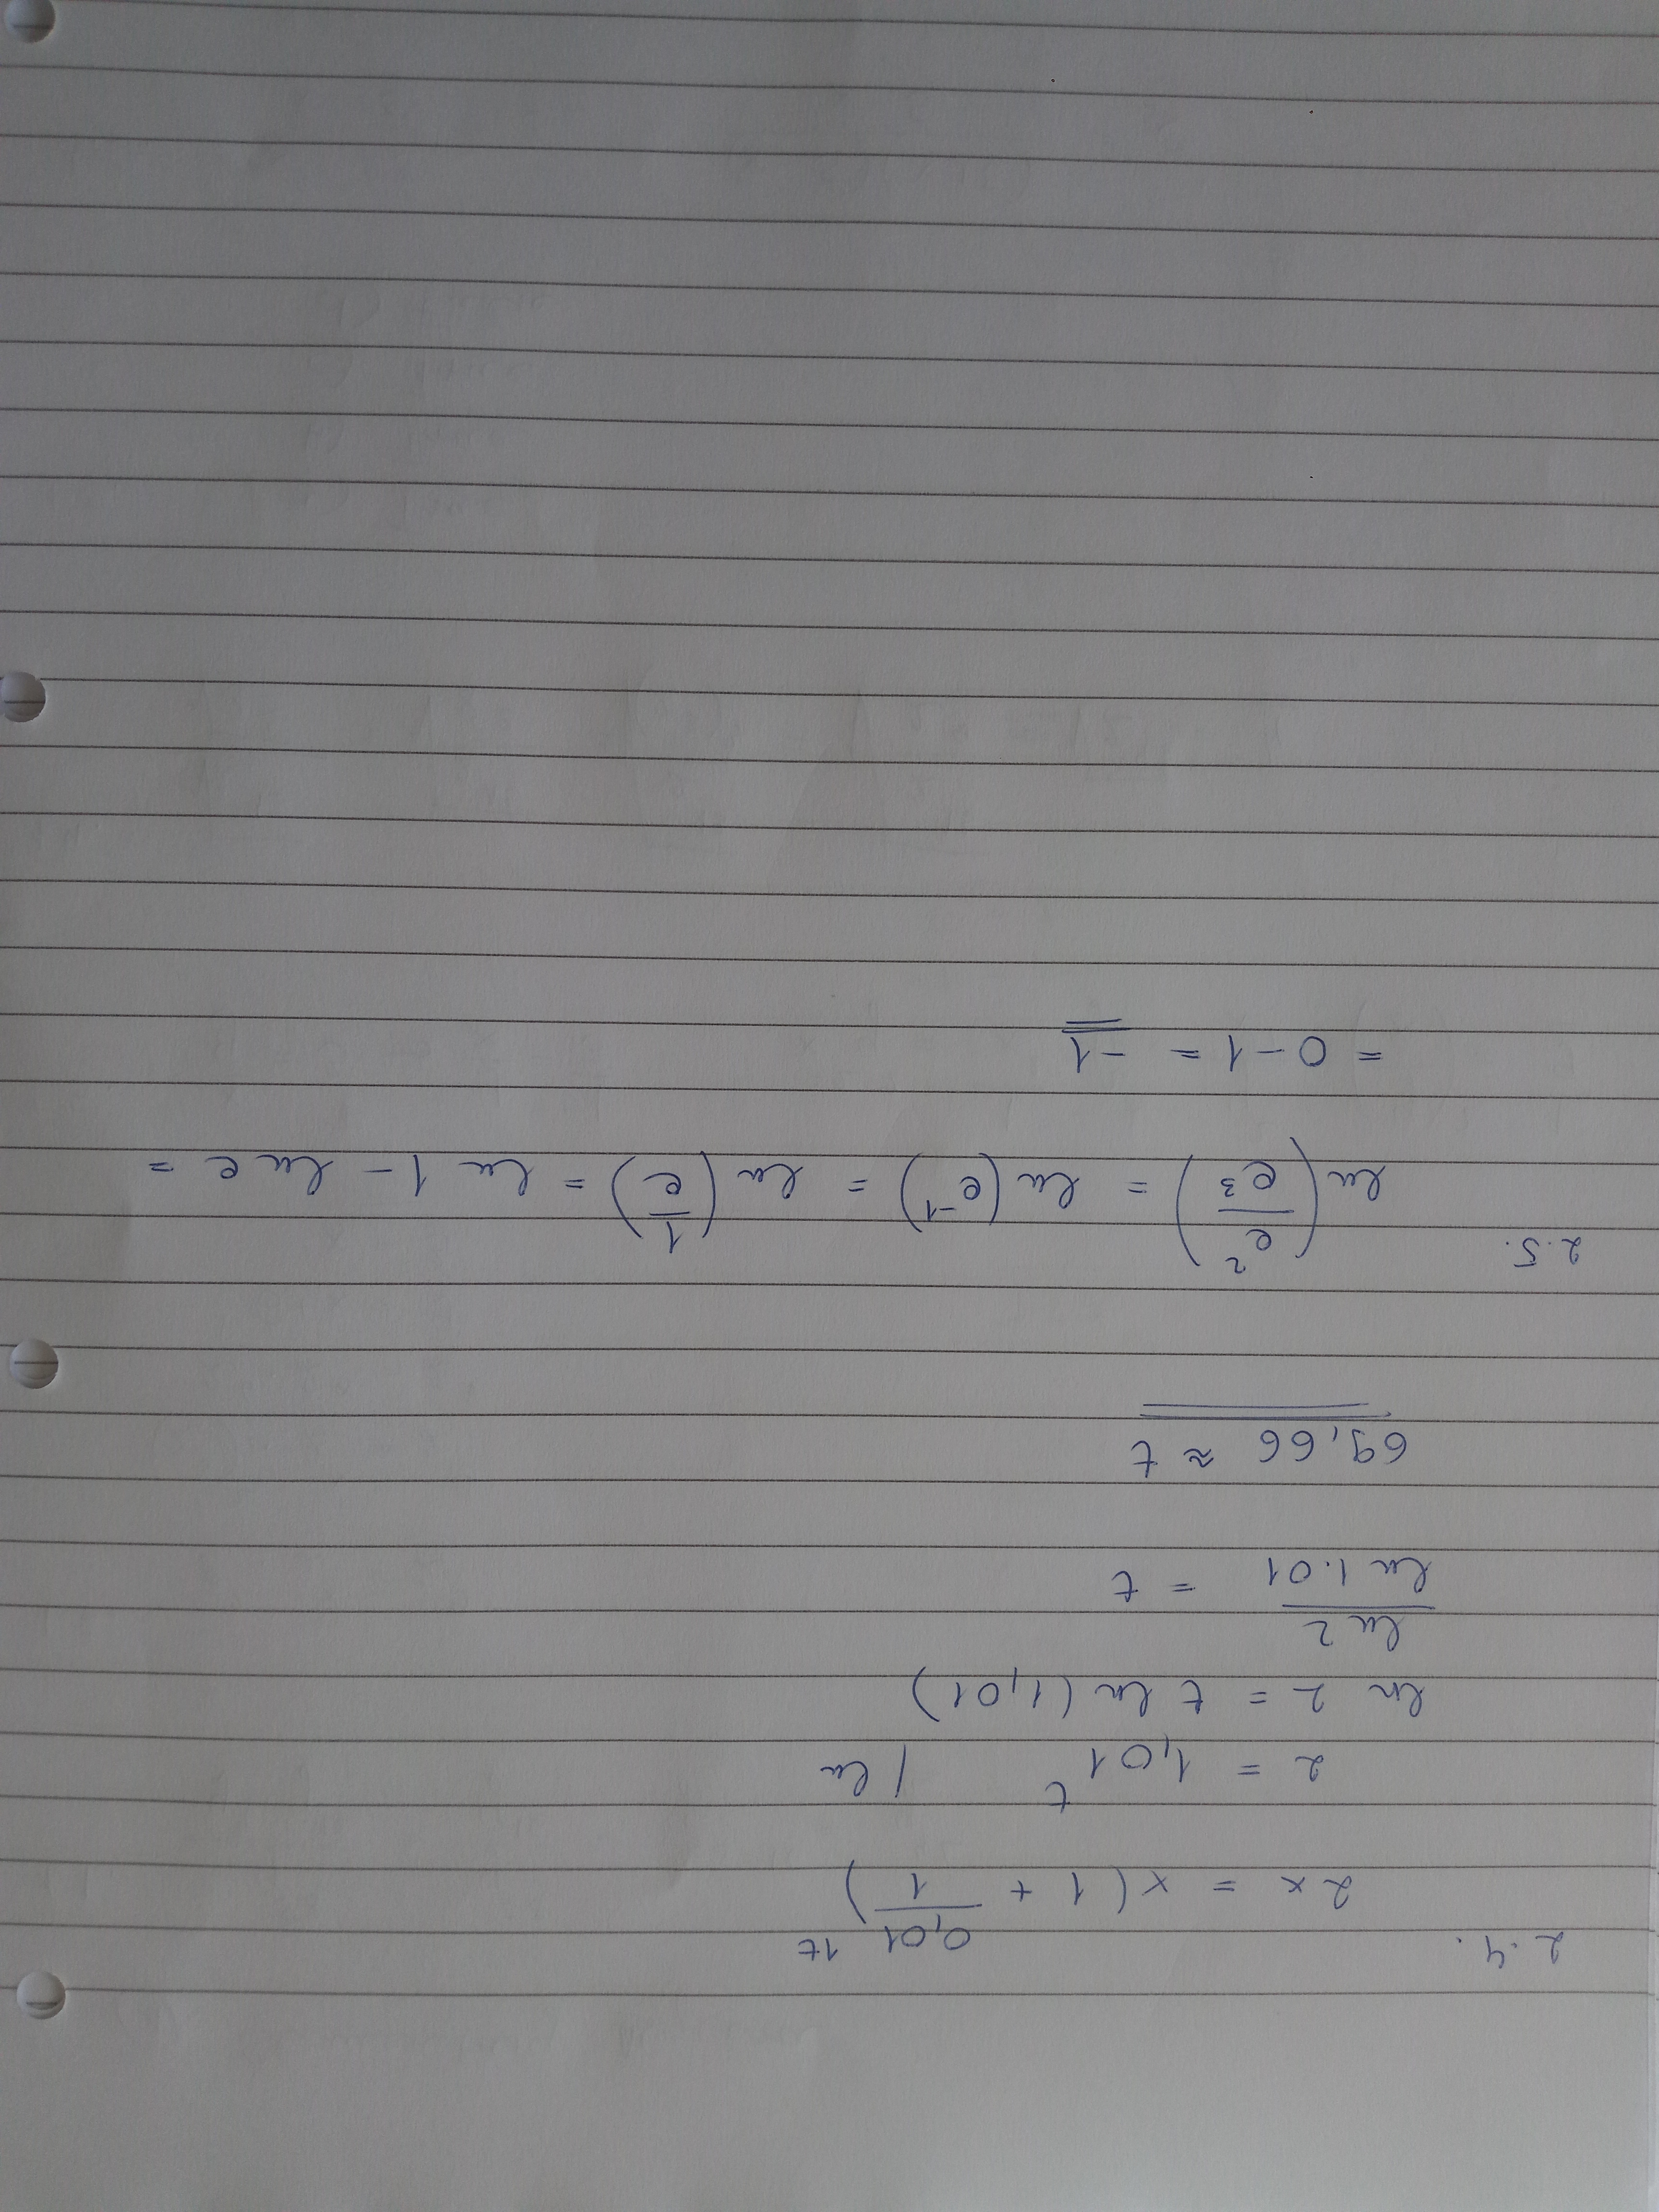 2.4.
2x = x(1 + 0,01/1)^1t
2 = 1,01^t / ln
ln 2 = t ln(1,01)
ln 2 / ln 1.01 = t
69,66 ≈ t
2.5.
ln(e^2/e^3) = ln(e^-1) = ln(1/e) = ln 1 - ln e =
= 0 - 1 = -1